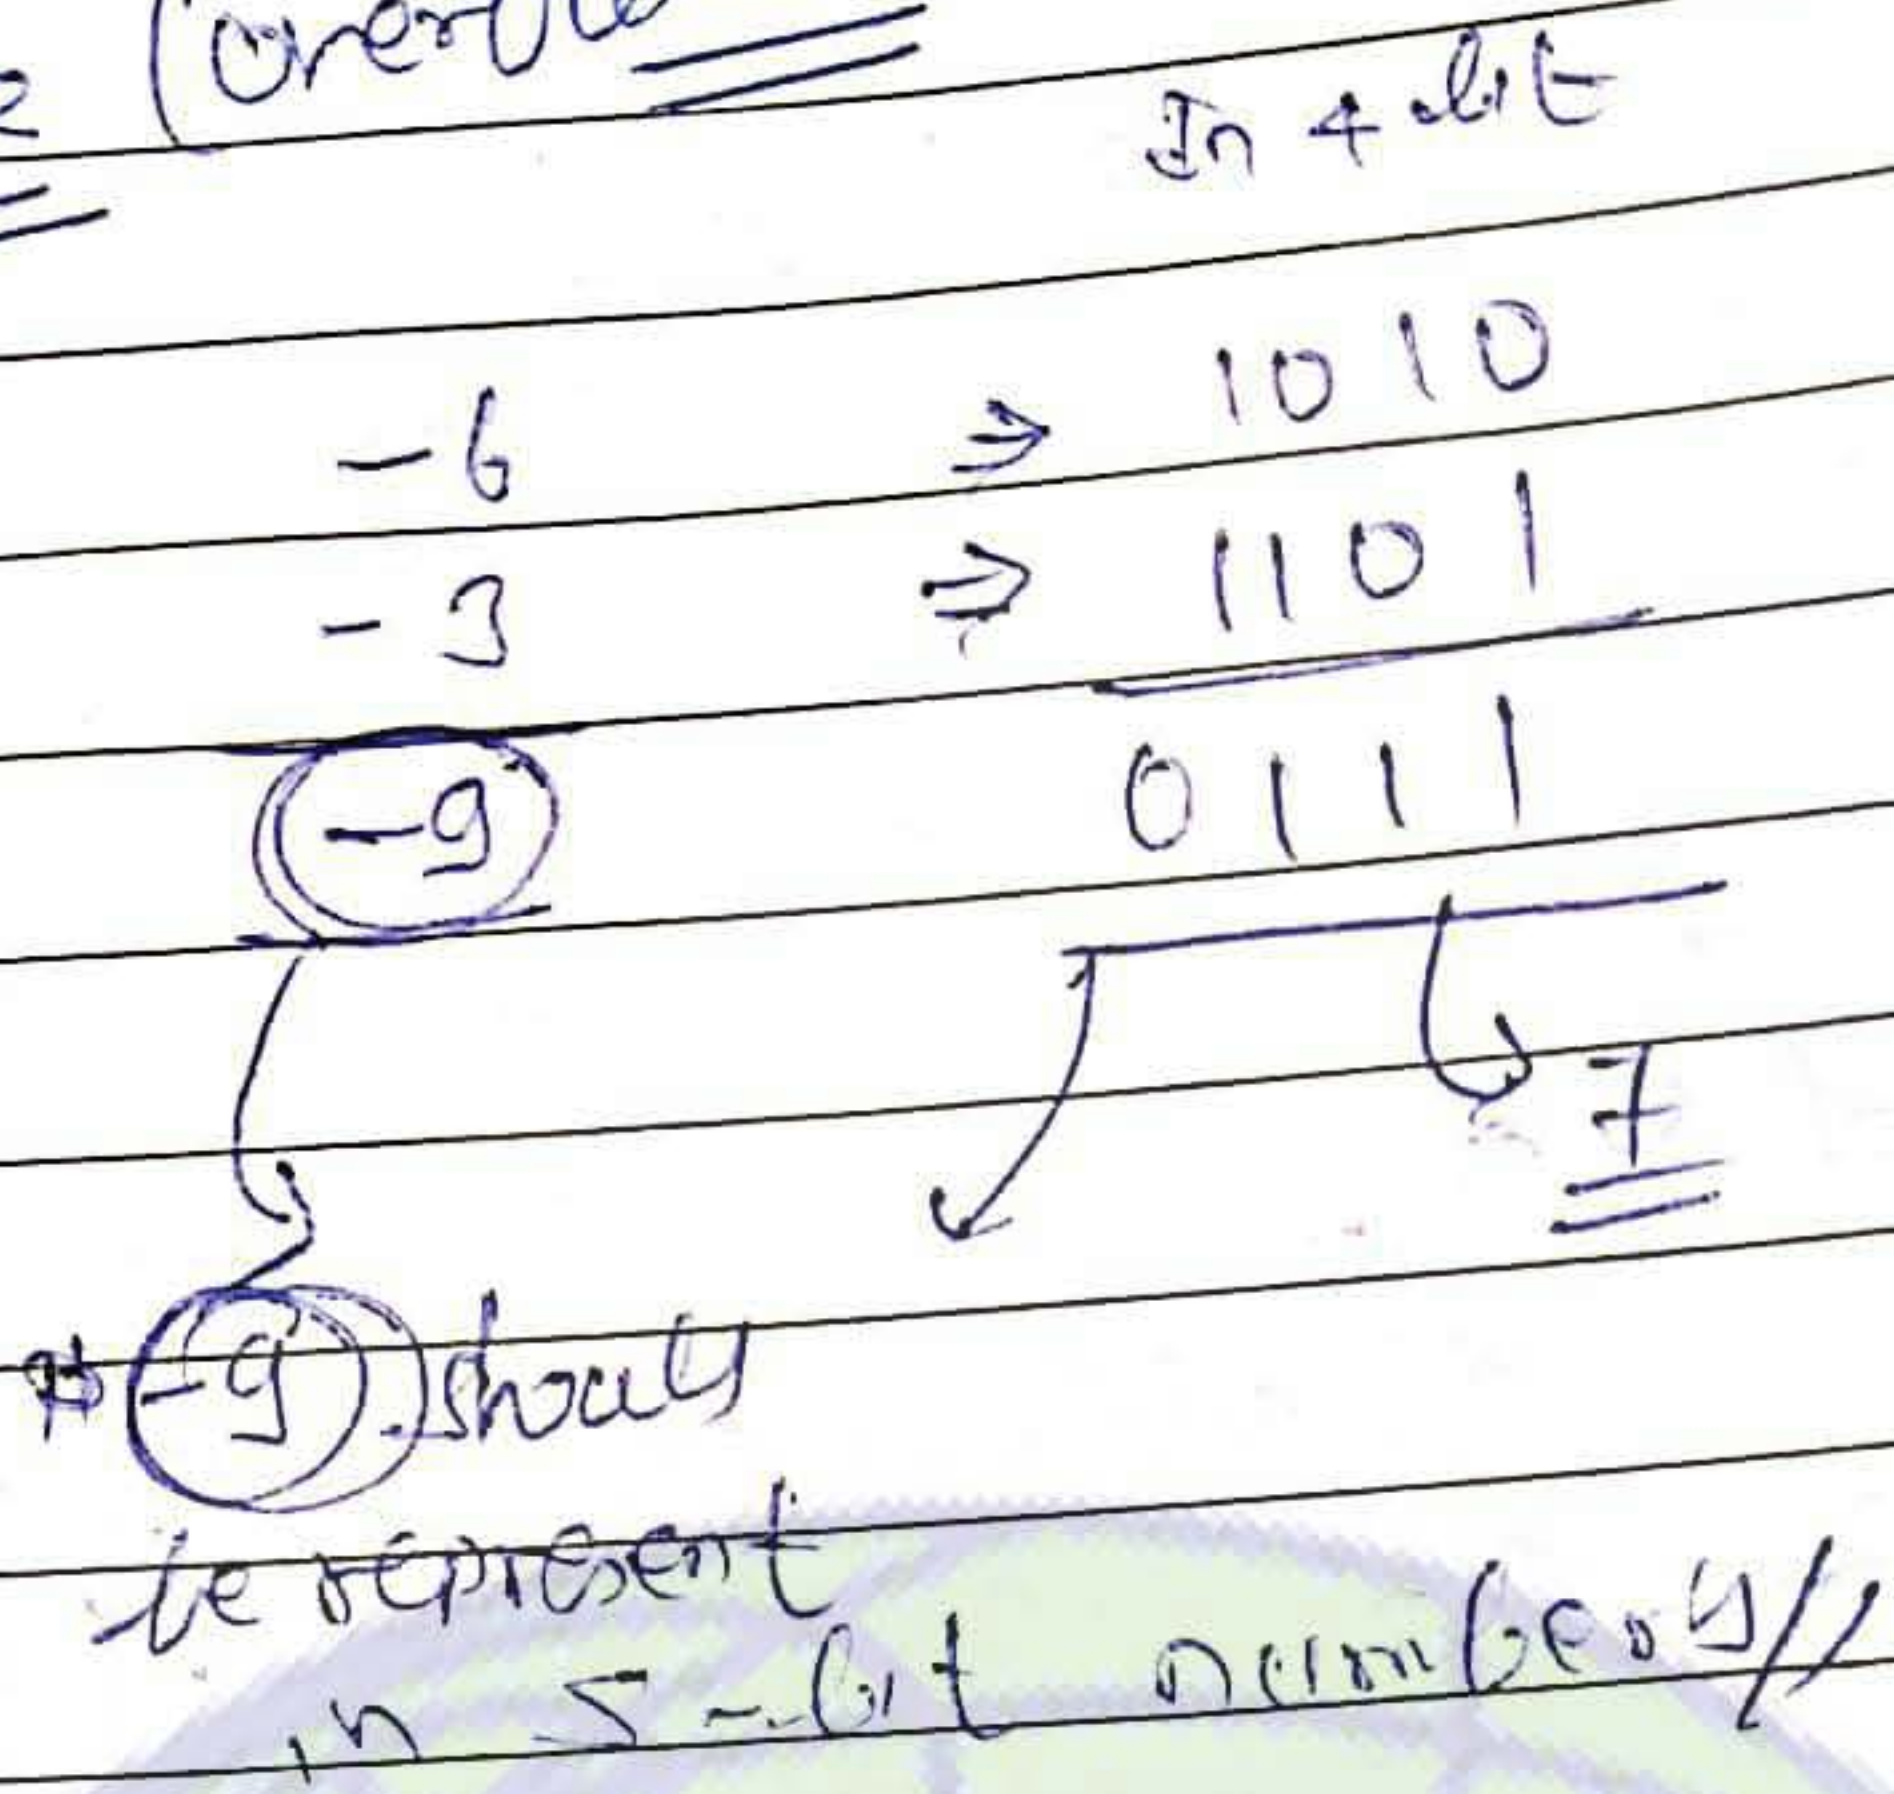 In 4 bit
-6 ⇒ 1010
-3 ⇒ 1101
-9 0111
7
-9 should
be represent
in 5-bit number//